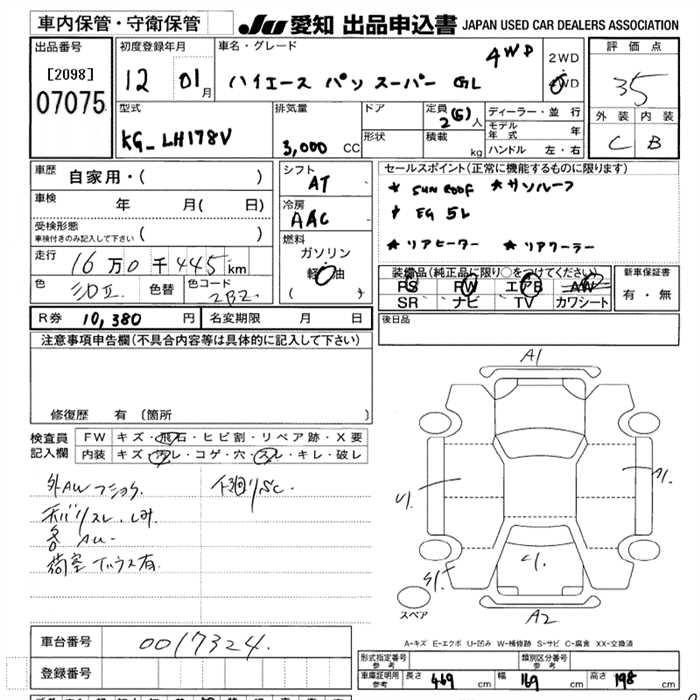 車内保管・守衛保管
JU 愛知 出品申込書 JAPAN USED CAR DEALERS ASSOCIATION
出品番号
[2098]
07075
初度登録年月
12 01月
車名・グレード
4WD
ハイエース バン スーパー GL
2WD
4WD
評価点
3.5
外装 内装
C B
型式
KG-LH178V
排気量
3,000 CC
ドア
形状
定員 2(5)人
積載 kg
ディーラー・並行
モデル年式 年
ハンドル 左・右
車歴 自家用・( )
車検 年 月( 日)
受検形態
車検付きのみ記入して下さい ( )
走行 16万0千445km
色 色替 色コード
2BZ
シフト
AT
冷房
AAC
燃料
ガソリン
軽油
( )
セールスポイント(正常に機能するものに限ります)
★ SUN ROOF ★サンルーフ
EG 5L
★リアヒーター ★リアクーラー
装備品(純正品に限り○をつけてください)
PS PW エアB AW
SR ナビ TV カワシート
新車保証書
有・無
R券 10,380 円 名変期限 月 日
後日品
注意事項申告欄(不具合内容等は具体的に記入して下さい)
修復歴 有(箇所 )
検査員記入欄
FW キズ・飛石・ヒビ割・リペア跡・X要
内装 キズ・汚レ・コゲ・穴・スレ・キレ・破レ
外AW
下廻りSC.
各AU-
荷室
A1
A1
A2
スペア
A-キズ E-エクボ U-凹み W-補修跡 S-サビ C-腐食 XX-交換済
車台番号 0017324
登録番号
形式指定番号 参考
類別区分番号 参考
車庫証明用 参考 長さ 469 cm 幅 169 cm 高さ 198 cm